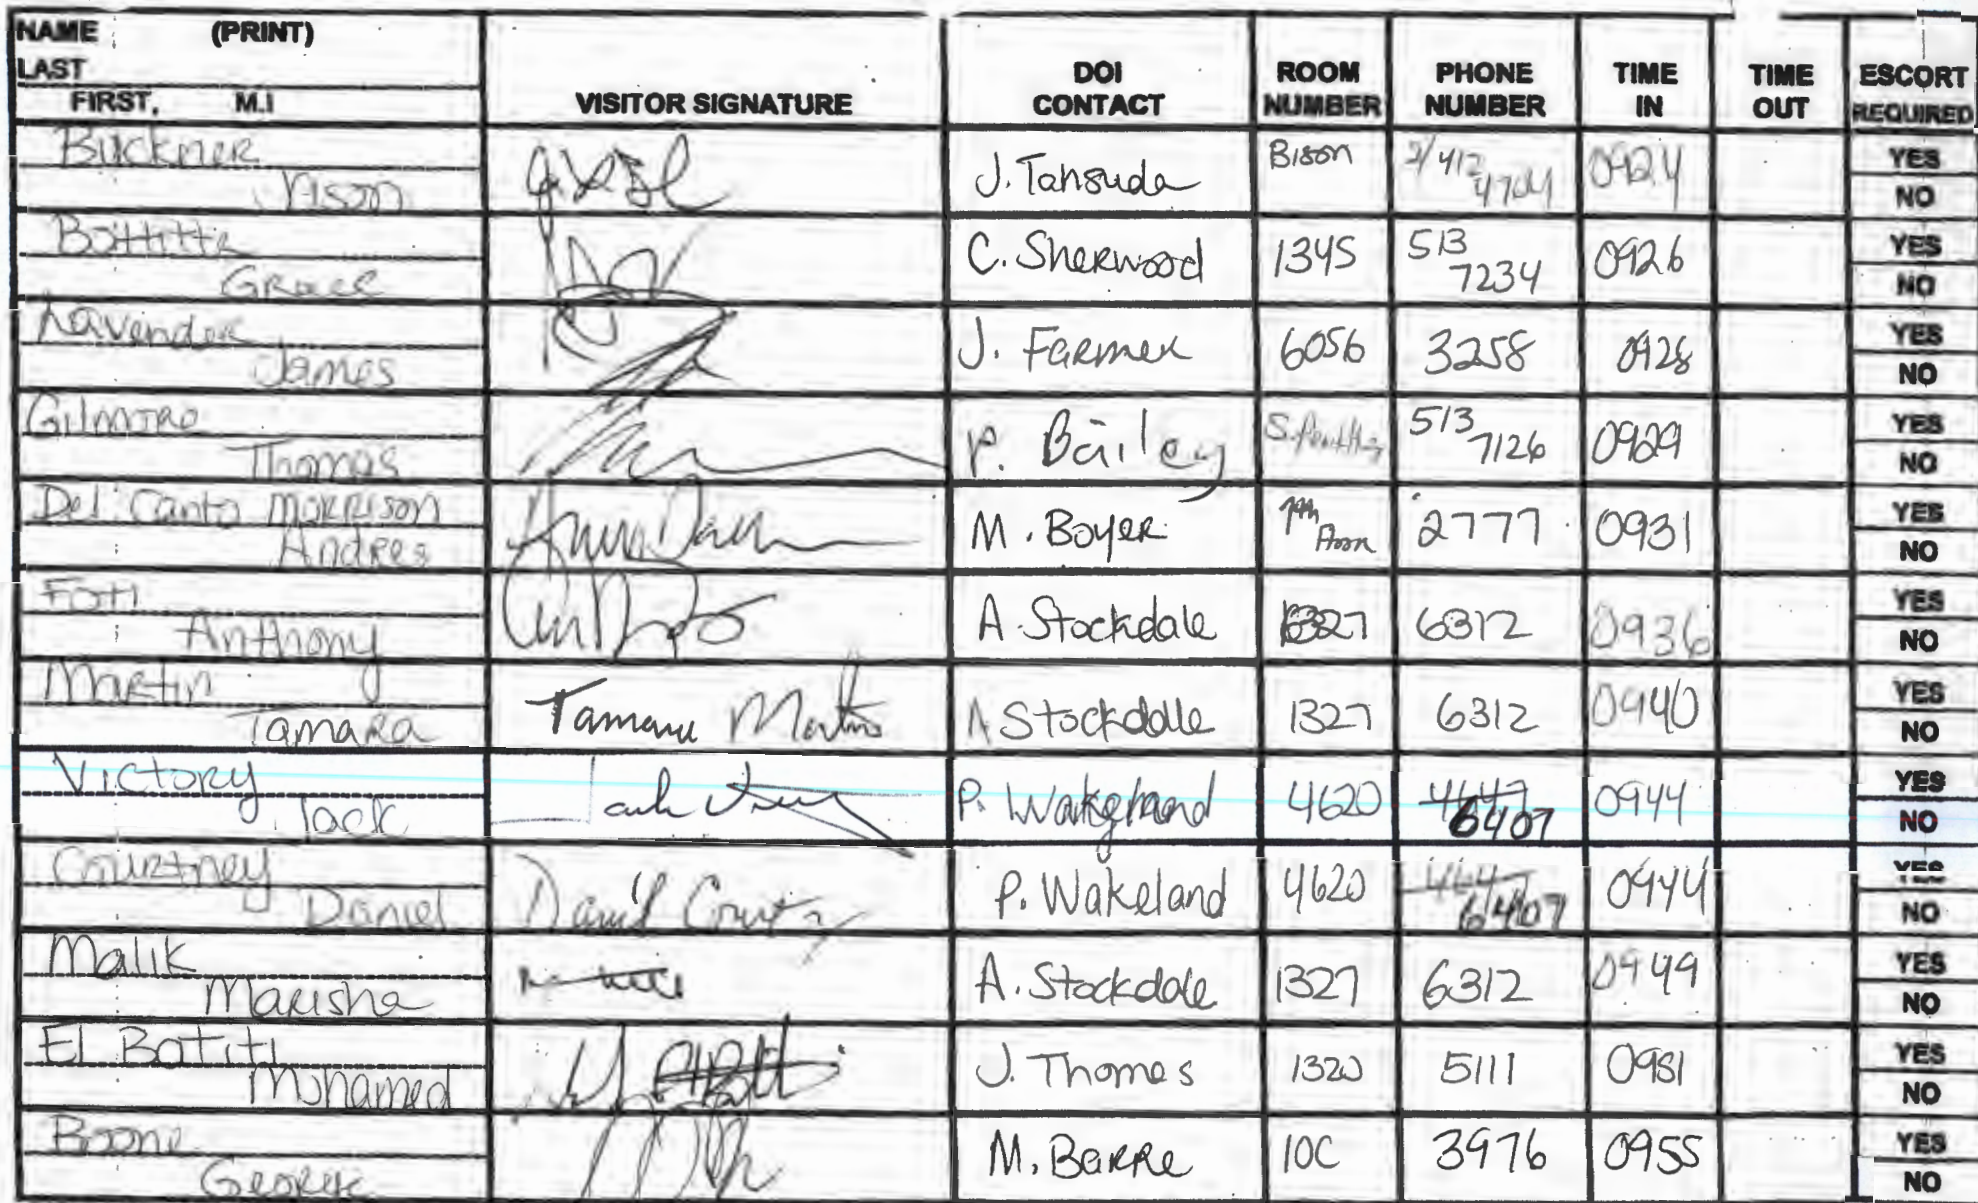 NAME (PRINT)
LAST
FIRST, M.I
VISITOR SIGNATURE
DOI CONTACT
ROOM NUMBER
PHONE NUMBER
TIME IN
TIME OUT
ESCORT REQUIRED
Buckner
Jason
J. Tahsuda Bison 4704 0924 YES
NO
Grace
C. Sherwood 1345 513 7234 0926 YES
NO
Lavender
James
J. Farmer 6056 3258 0928 YES
NO
Gilmore
Thomas
P. Bailey 513 7126 0929 YES
NO
Del Canto Morrison
Andres
M. Boyer 2777 0931 YES
NO
Foti
Anthony
A Stockdale 1327 6312 0936 YES
NO
Martin
Tamara
Tamara Martin A Stockdale 1327 6312 0940 YES
NO
Victory
Jack
P. Wakeland 4620 6407 0944 YES
NO
Courtney
Daniel
P. Wakeland 4620 6407 0944 YES
NO
Malik
Marisha
A. Stockdale 1327 6312 0949 YES
NO
El Batiti
Mohamed
J. Thomas 1320 5111 0951 YES
NO
Boone
George
M. Barre 10C 3976 0955 YES
NO